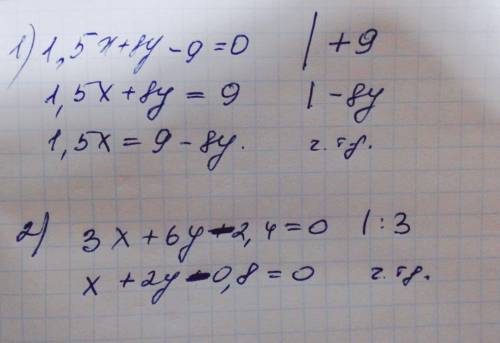 1) 1,5x+8y-9=0 | +9
1,5x+8y = 9 | -8y
1,5x = 9 - 8y. ч.т.д.
2) 3x+6y-2,4=0 | :3
x+2y-0,8=0 ч.т.д.